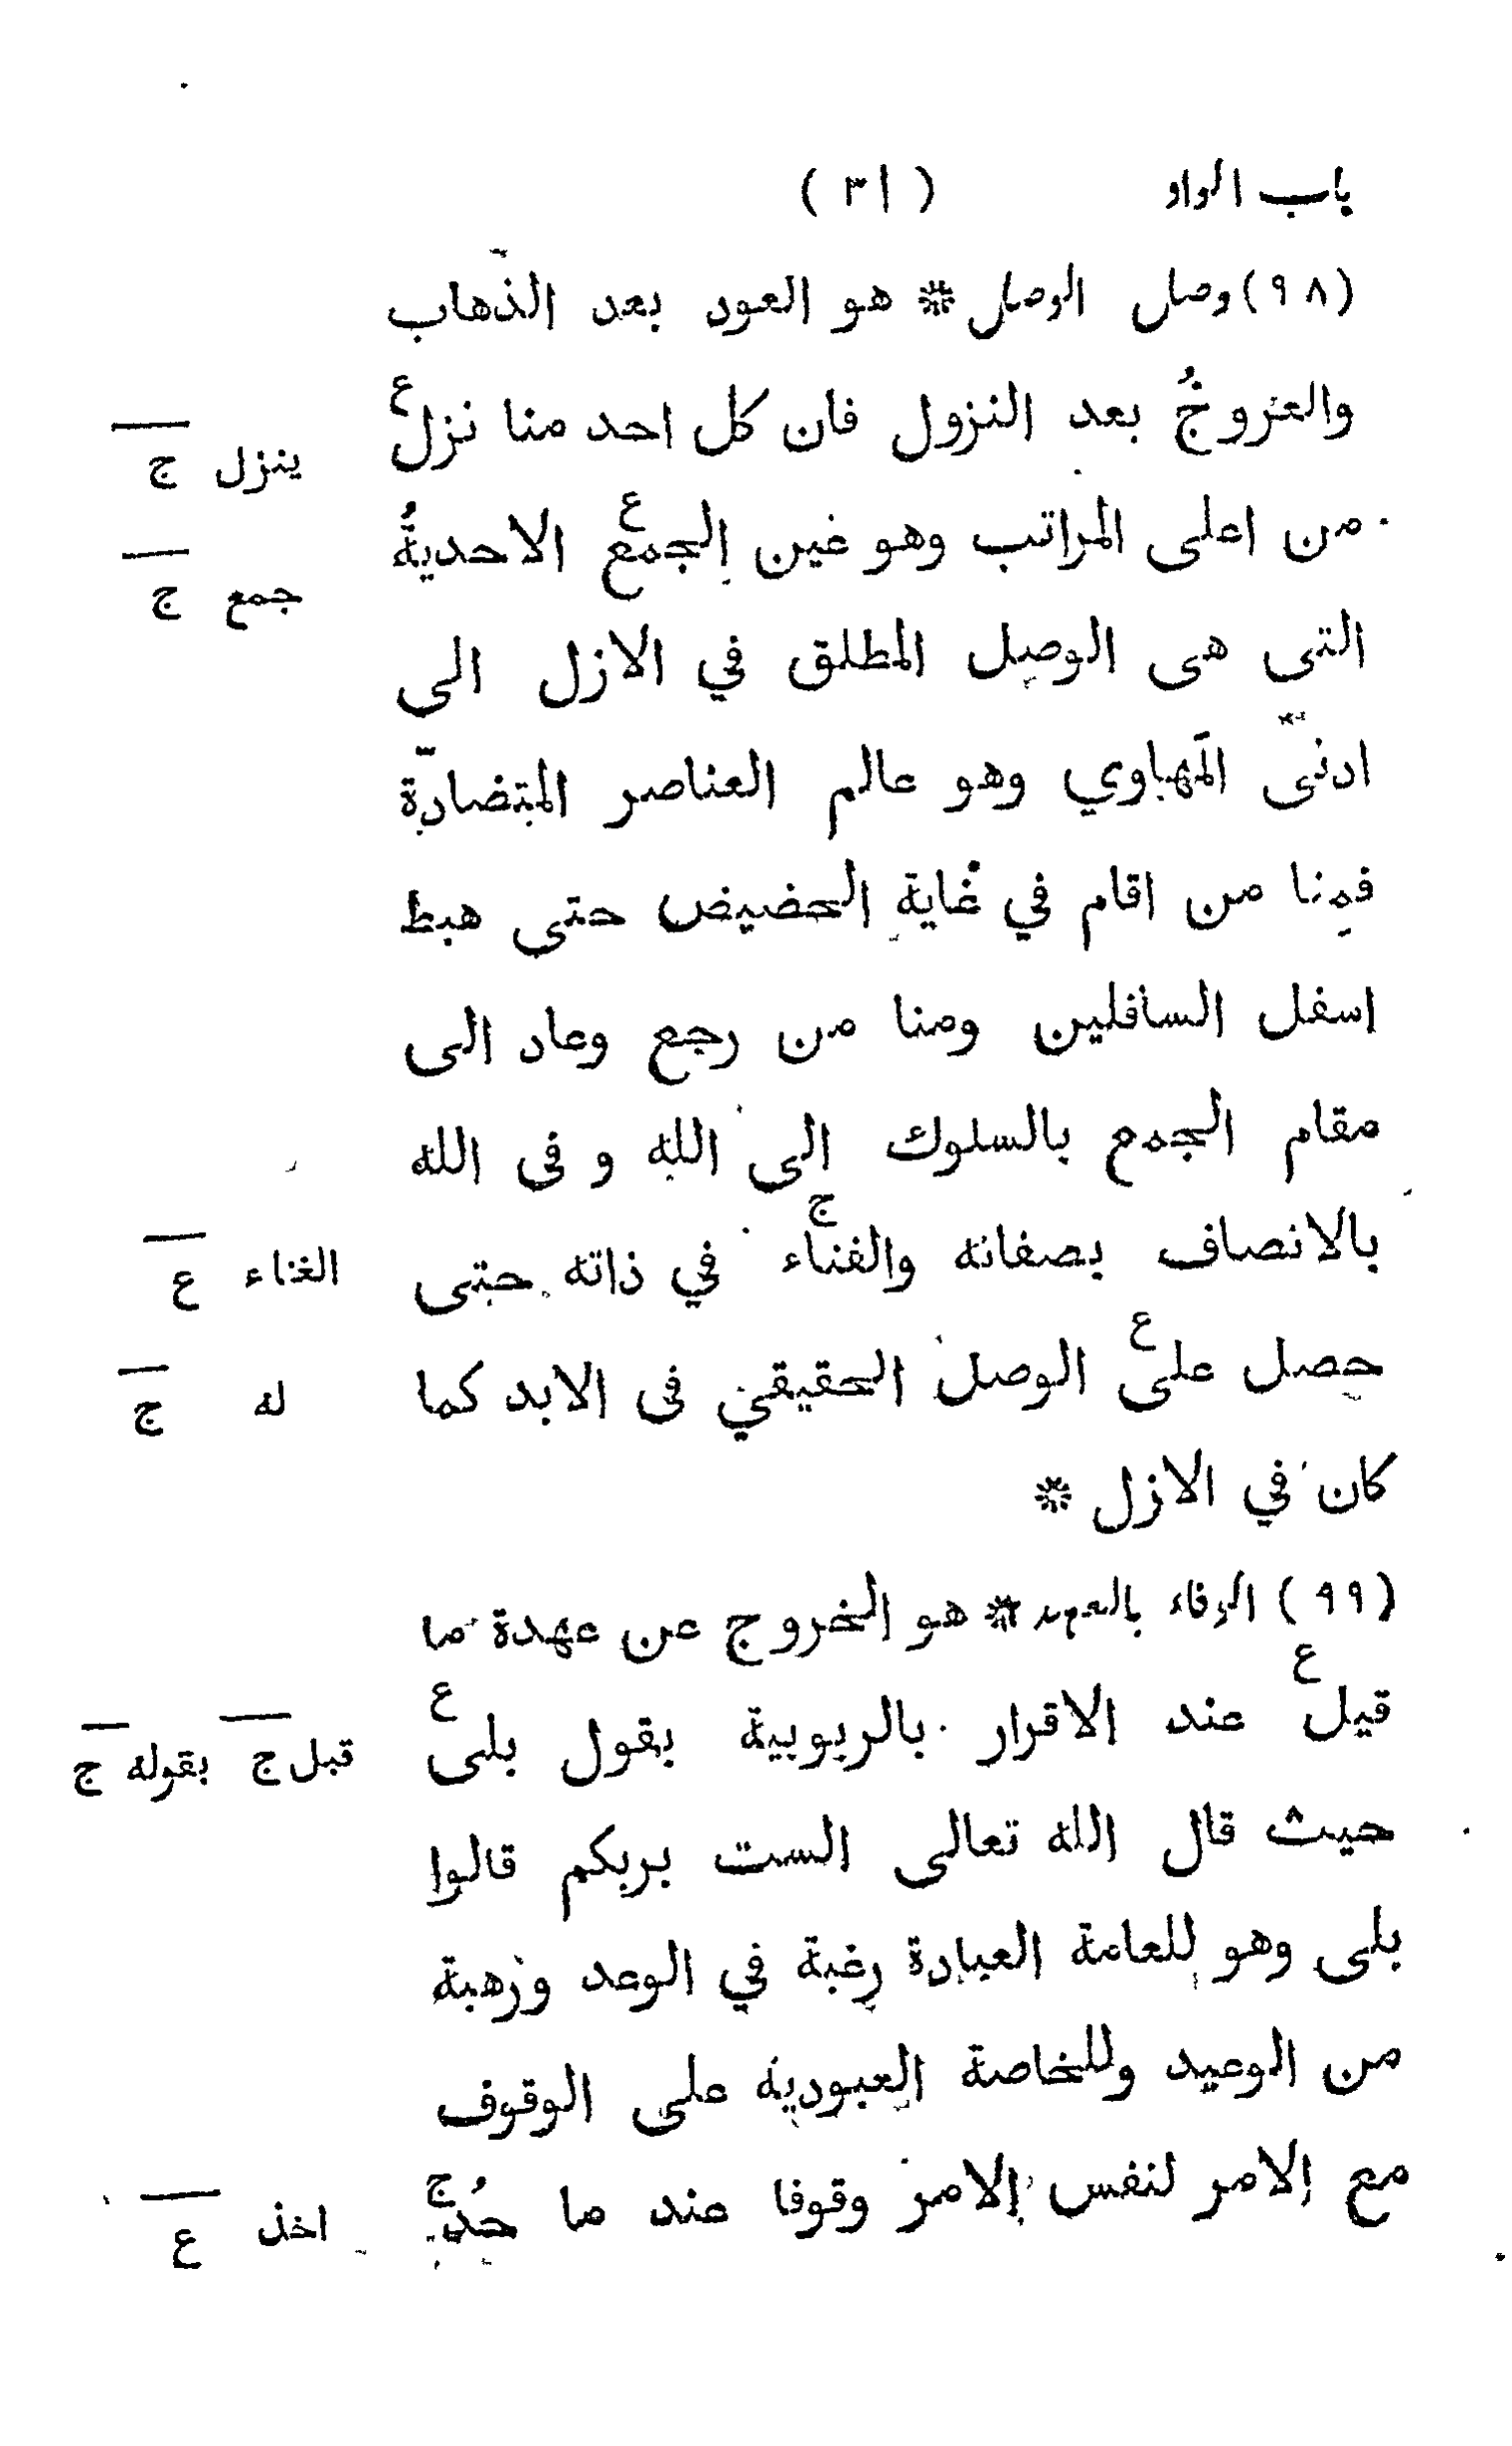 باب الواو ( ٣١ )
(٩٨) وصل الوصل * هو العود بعد الذّهاب
والعزوجُ بعد النزول فان كل احد منا نزل ع
ينزل ج
من اعلى المراتب وهو عين الجمع ع الاحديةُ
جمع ج
التى هى الوصل المطلق في الازل الى
ادنىّ المَهاوي وهو عالم العناصر المتضادّة
فمنا من اقام في غاية الحضيض حتى هبط
اسفل السافلين ومنا من رجع وعاد الى
مقام الجمع بالسلوك الى الله و فى الله
بالانصاف بصفاته والفناء ج في ذاته حتى
الغناء ع
حصل على ع الوصل الحقيقي فى الابد كما
له ج
كان في الازل *
(٩٩) الوفاء بالعهد * هو الخروج عن عهدة ما
قيل ع عند الاقرار بالربوبية بقول بلى ع
قبل ج بقوله ج
حيث قال الله تعالى الست بربكم قالوا
بلى وهو للعامة العبادة رغبة في الوعد ورهبة
من الوعيد وللخاصة العبودية على الوقوف
مع الامر لنفس الامر وقوفا عند ما حُدّ ج
اخذ ع